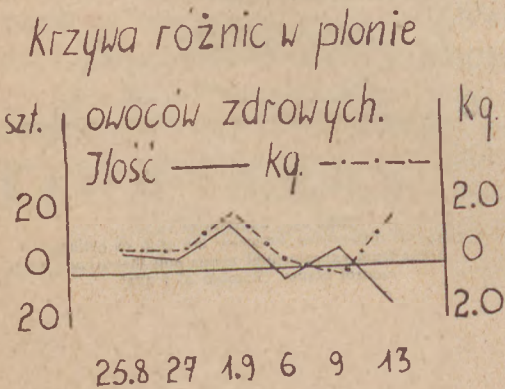 Krzywa różnic w plonie
szt. owoców zdrowych. kg.
Ilość —— kg. -·-·-
20 2.0
0 0
20 2.0
25.8 27 1.9 6 9 13